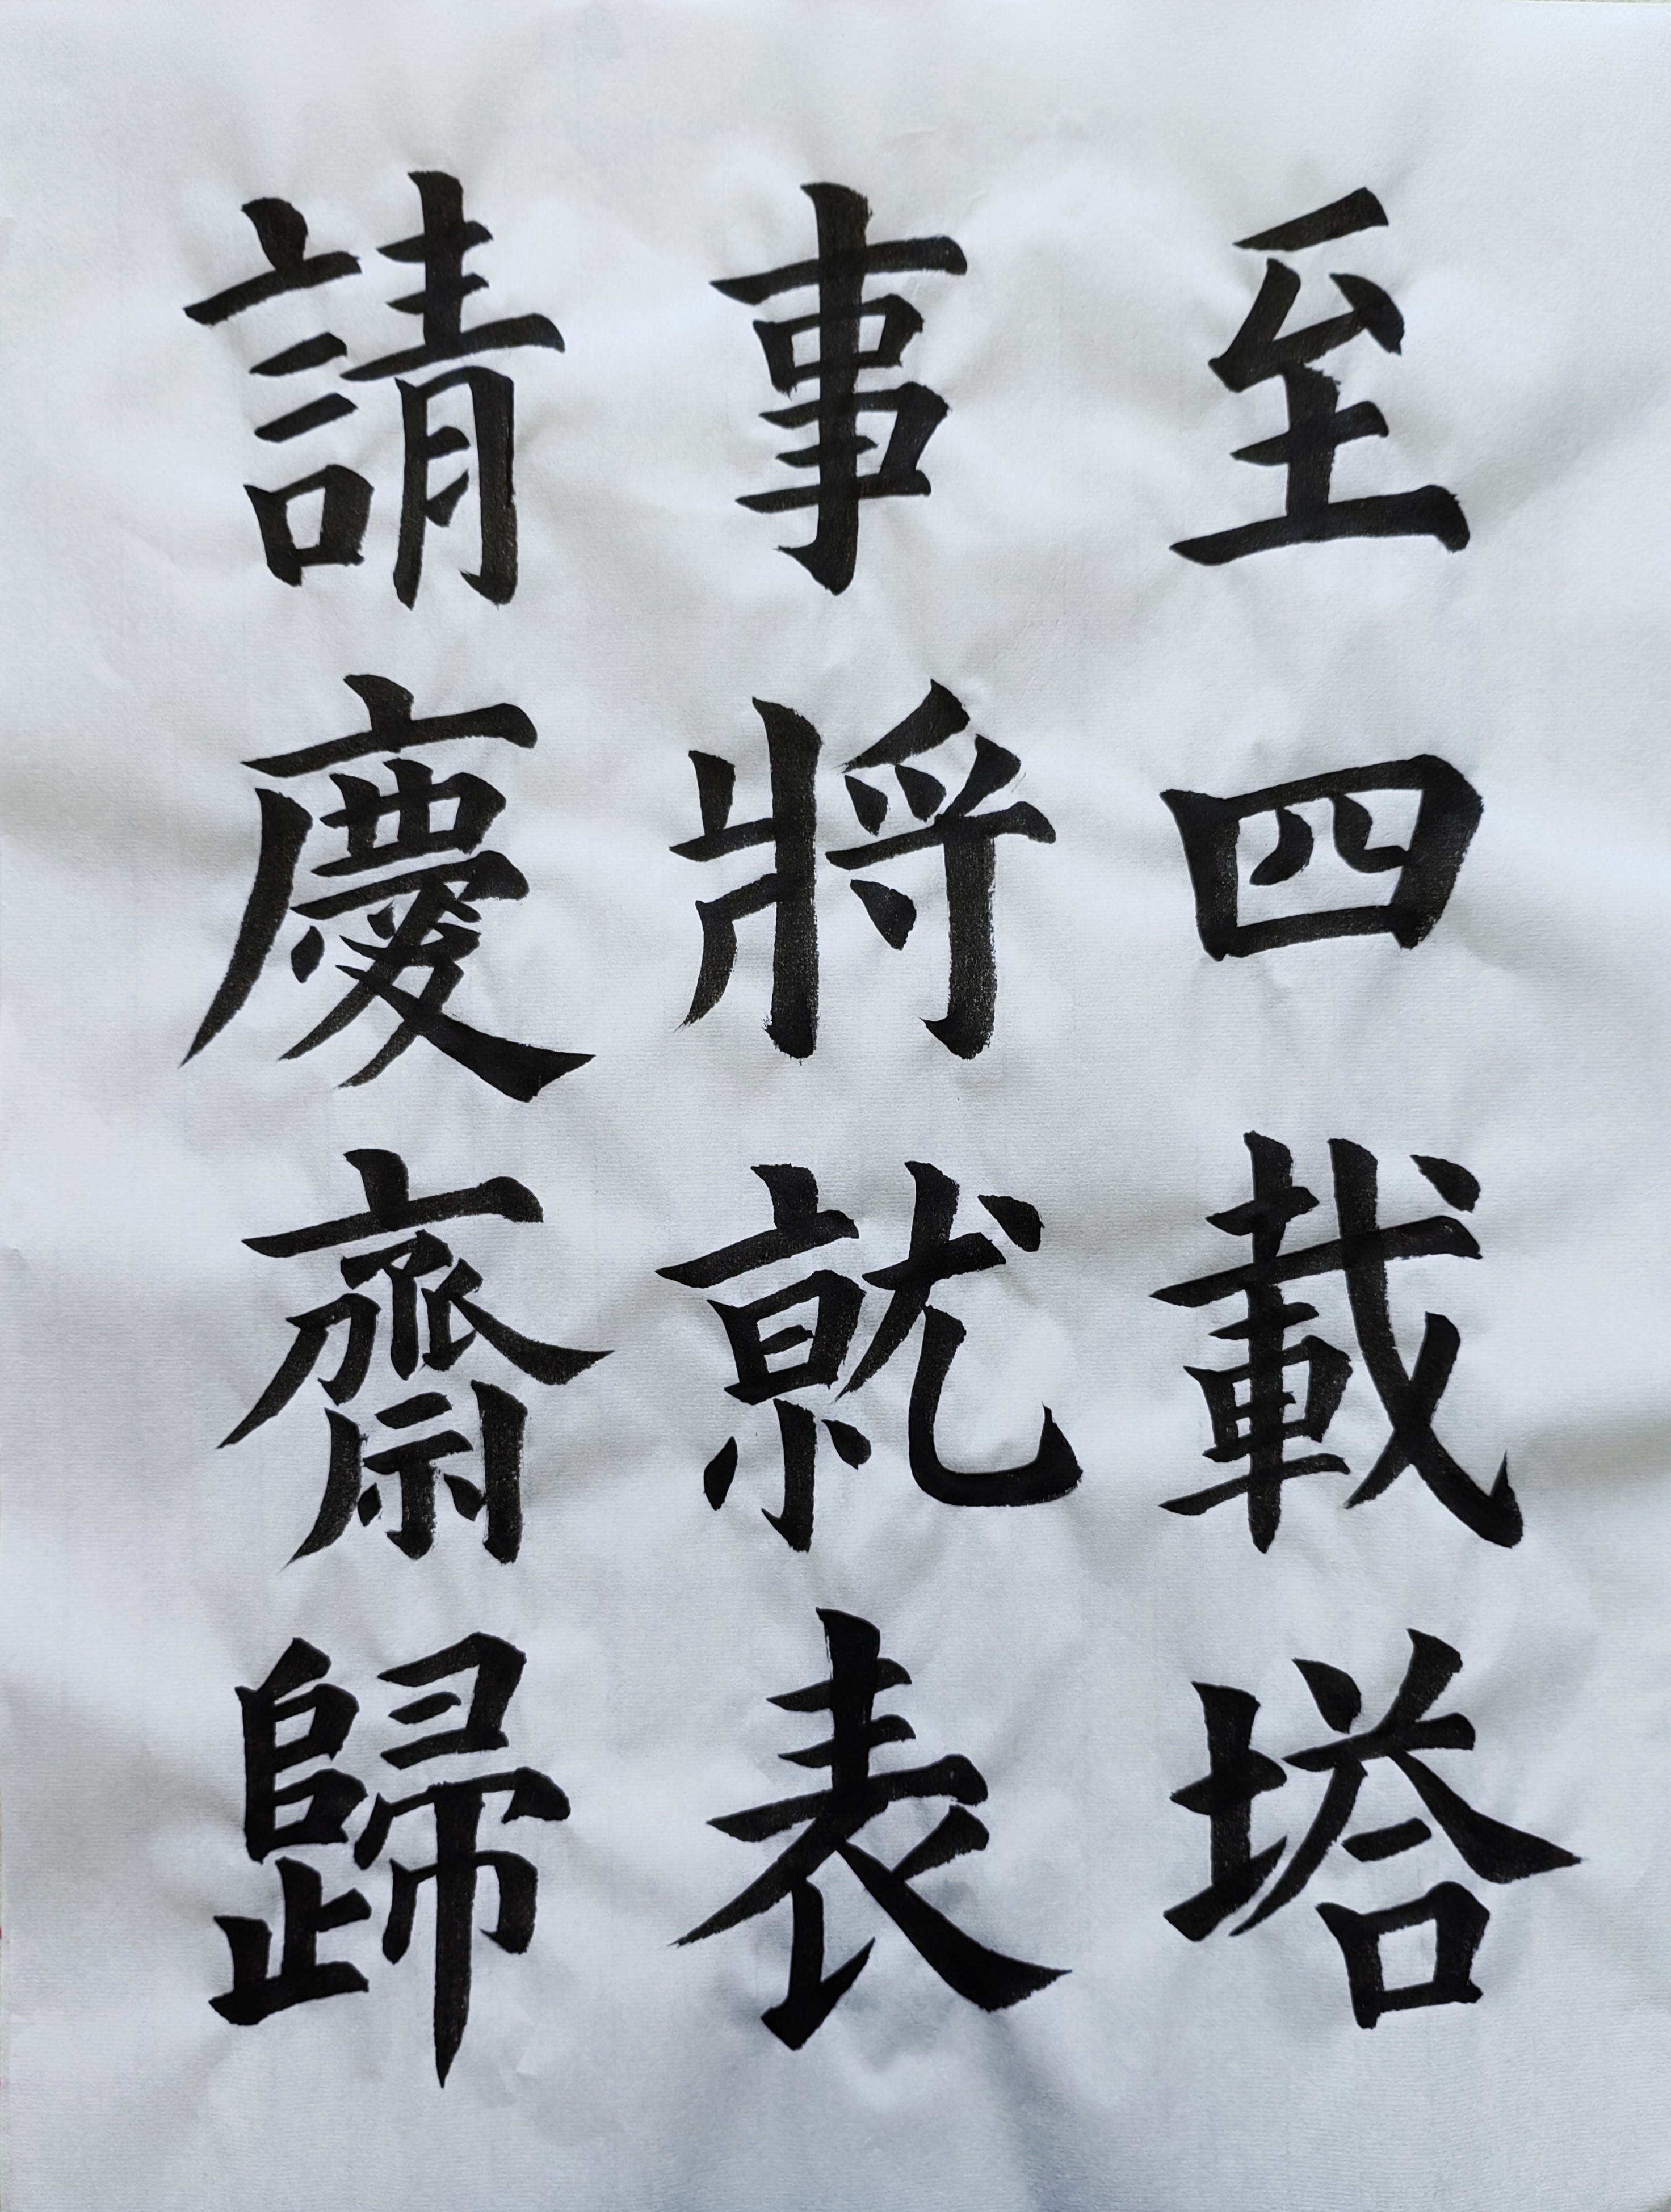 至四載塔
事將就表
請慶齋歸